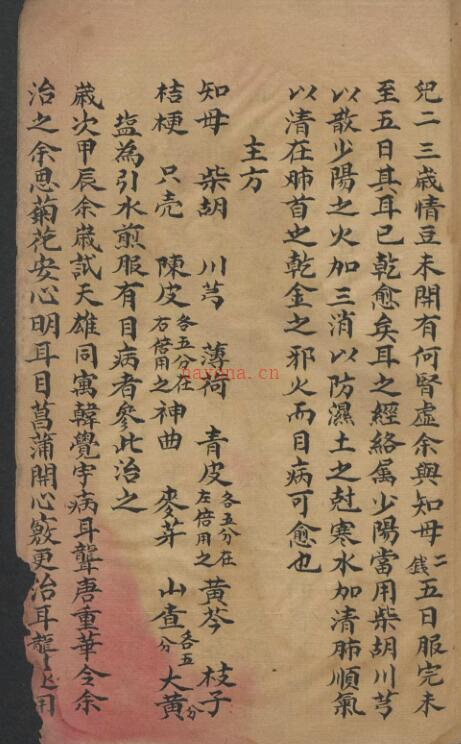 兒二三歲情豆未開有何腎虛余與知母二錢五日服完未
至五日其耳已乾愈矣耳之經絡属少陽當用柴胡川芎
以散少陽之火加三消以防濕土之尅寒水加清肺順氣
以清在肺首之乾金之邪火而目病可愈也
主方
知母 柴胡 川芎 薄荷 青皮各五分在左倍用之黄芩 枝子
桔梗 只壳 陳皮各五分在右倍用之神曲 麥芽 山查各五分大黄分
盐為引水煎服有目病者參此治之
歲次甲辰余歲試天雄同寓韓覺宇病耳聾唐重華令余
治之余思菊花安心明耳目菖蒲開心竅更治耳聾用
narena.cn